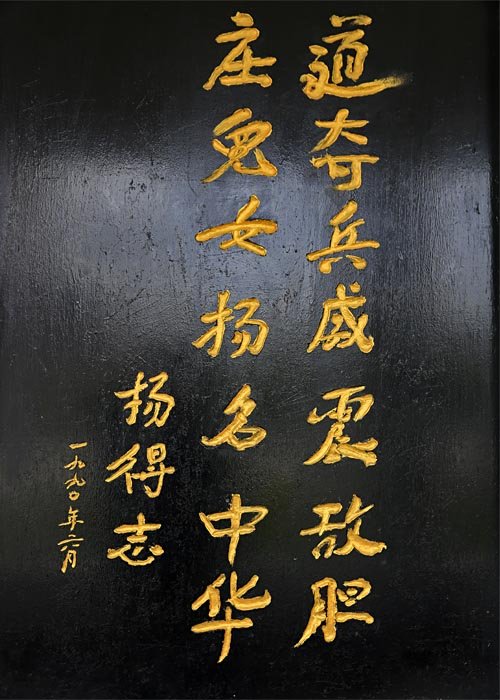 道奇兵威震敌胆
庄兒女扬名中华
杨得志
一九九〇年六月